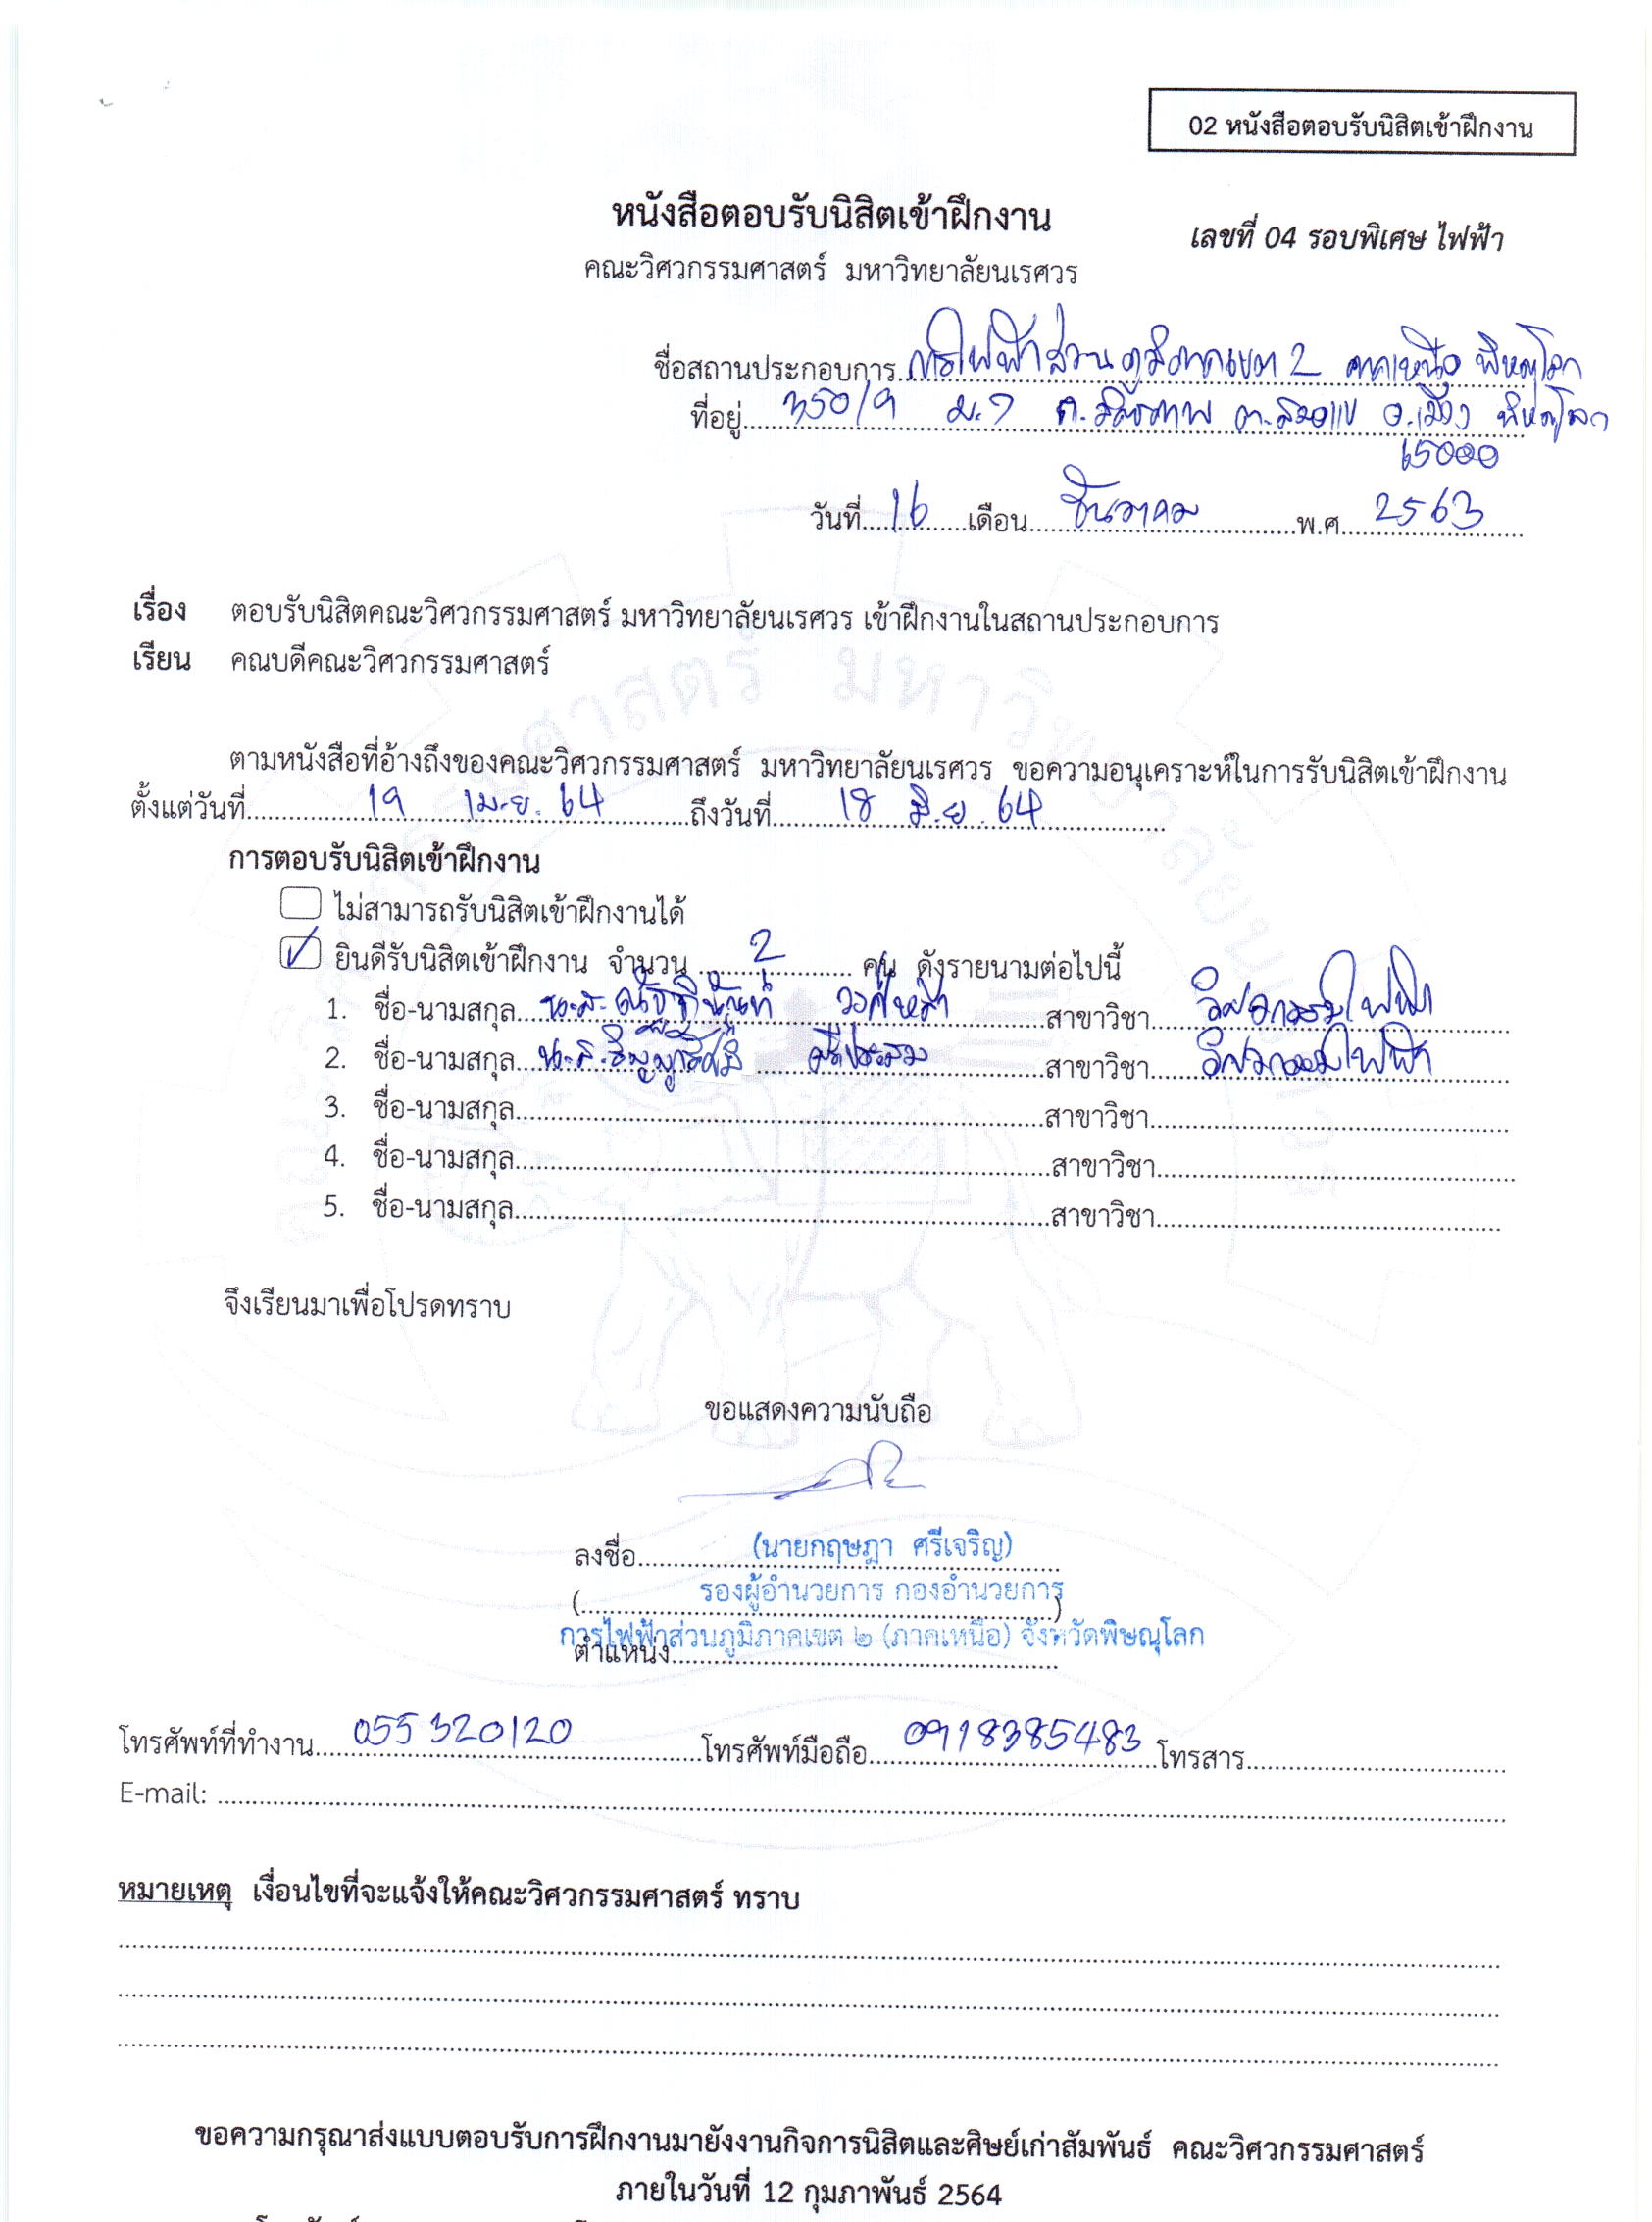 02 หนังสือตอบรับนิสิตเข้าฝึกงาน
หนังสือตอบรับนิสิตเข้าฝึกงาน
เลขที่ 04 รอบพิเศษ ไฟฟ้า
คณะวิศวกรรมศาสตร์ มหาวิทยาลัยนเรศวร
ชื่อสถานประกอบการ การไฟฟ้าส่วนภูมิภาคเขต 2 ภาคเหนือ พิษณุโลก
ที่อยู่ 350/9 ม.7 ถ.มิตรภาพ ต.สมอแข อ.เมือง พิษณุโลก
65000
วันที่ 16 เดือน ธันวาคม พ.ศ. 2563
เรื่อง ตอบรับนิสิตคณะวิศวกรรมศาสตร์ มหาวิทยาลัยนเรศวร เข้าฝึกงานในสถานประกอบการ
เรียน คณบดีคณะวิศวกรรมศาสตร์
ตามหนังสือที่อ้างถึงของคณะวิศวกรรมศาสตร์ มหาวิทยาลัยนเรศวร ขอความอนุเคราะห์ในการรับนิสิตเข้าฝึกงาน
ตั้งแต่วันที่ 19 เม.ย. 64 ถึงวันที่ 18 มิ.ย. 64
การตอบรับนิสิตเข้าฝึกงาน
ไม่สามารถรับนิสิตเข้าฝึกงานได้
ยินดีรับนิสิตเข้าฝึกงาน จำนวน 2 คน ดังรายนามต่อไปนี้
1. ชื่อ-นามสกุล น.ส. สาขาวิชา วิศวกรรมไฟฟ้า
2. ชื่อ-นามสกุล น.ส. สาขาวิชา วิศวกรรมไฟฟ้า
3. ชื่อ-นามสกุล สาขาวิชา
4. ชื่อ-นามสกุล สาขาวิชา
5. ชื่อ-นามสกุล สาขาวิชา
จึงเรียนมาเพื่อโปรดทราบ
ขอแสดงความนับถือ
ลงชื่อ (นายกฤษฎา ศรีเจริญ)
(รองผู้อำนวยการ กองอำนวยการ)
การไฟฟ้าส่วนภูมิภาคเขต ๒ (ภาคเหนือ) จังหวัดพิษณุโลก
ตำแหน่ง
โทรศัพท์ที่ทำงาน 055320120 โทรศัพท์มือถือ 0918385483 โทรสาร
E-mail:
หมายเหตุ เงื่อนไขที่จะแจ้งให้คณะวิศวกรรมศาสตร์ ทราบ
ขอความกรุณาส่งแบบตอบรับการฝึกงานมายังงานกิจการนิสิตและศิษย์เก่าสัมพันธ์ คณะวิศวกรรมศาสตร์
ภายในวันที่ 12 กุมภาพันธ์ 2564